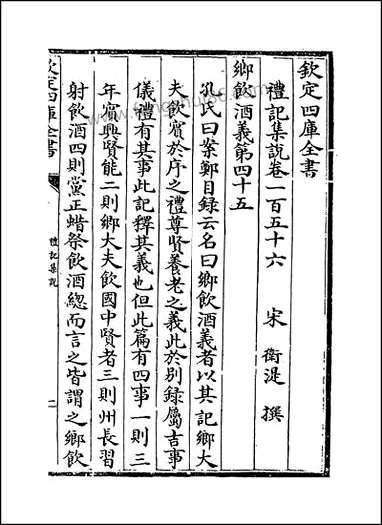 欽定四庫全書
禮記集說卷一百五十六
宋 衛湜 撰
鄉飲酒義第四十五
孔氏曰案鄭目錄云名曰鄉飲酒義者以其記鄉大
夫飲賓於庠序之禮尊賢養老之義此於別錄屬吉事
儀禮有其事此記釋其義也但此篇有四事一則三
年賓興賢能二則鄉大夫飲國中賢者三則州長習
射飲酒四則黨正蜡祭飲酒緫而言之皆謂之鄉飲
欽定四庫全書
禮記集說